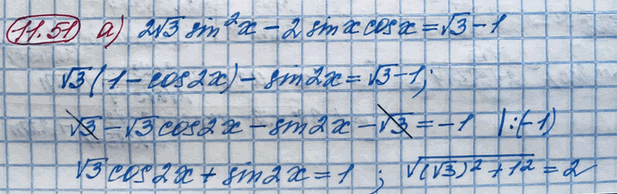 11.51 а) 2√3 sin²x - 2 sinx cosx = √3 - 1
√3(1 - cos2x) - sin2x = √3 - 1;
√3 - √3 cos2x - sin2x - √3 = -1 |:(-1)
√3 cos2x + sin2x = 1 ; √((√3)² + 1²) = 2